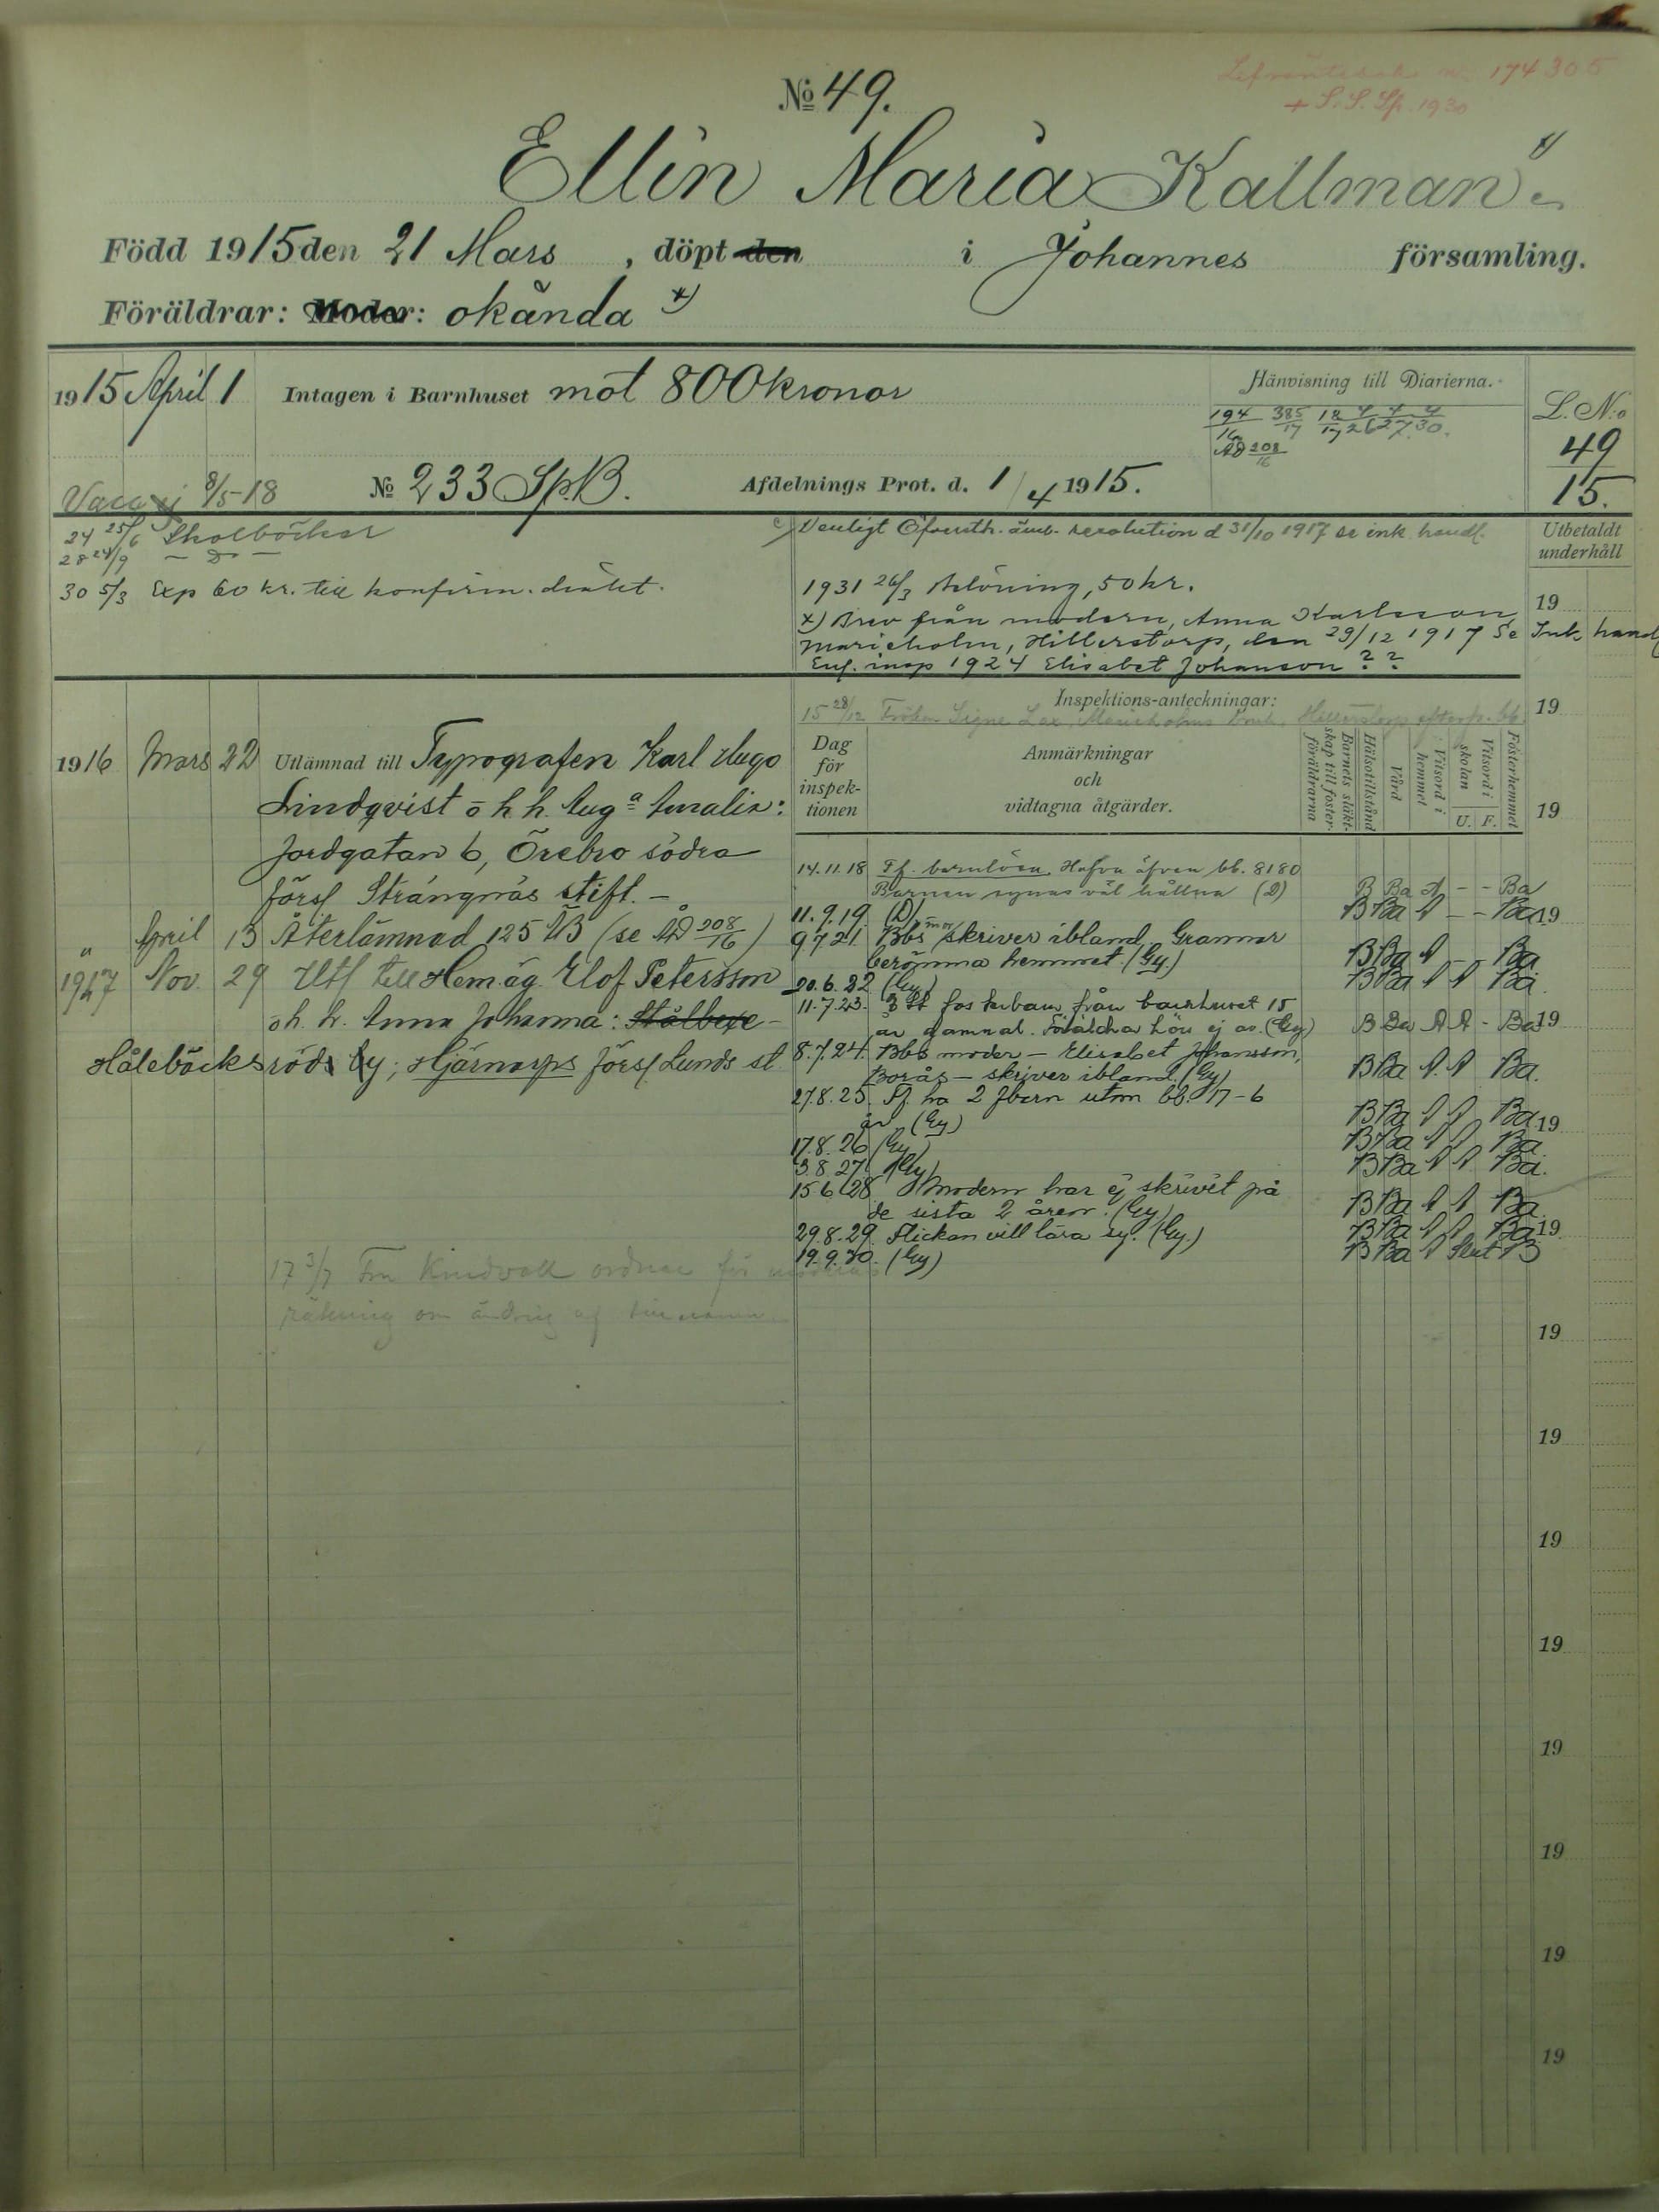 174 305
+ S. S. Sp. 1930
No 49.
Ellin Maria Kallman
Född 1915 den 21 Mars, döpt den i Johannes församling.
Föräldrar: Moder: okända x)
1915 April 1 Intagen i Barnhuset mot 800 kronor
Hänvisning till Diarierna.
194/16 385/17 18/17 4/26 4/27 4/30
ÅD 208/16
L. N:o
49
15.
Vacc ej 8/5-18
No 233 Sp.B. Afdelnings Prot. d. 1/4 1915.
24 25/6 Skolböcker
28 24/9 — D —
30 5/3 Exp 60 kr. till konfirm.
Enligt Öfversth. ämb. resolution d 31/10 1917 se ink handl.
Utbetaldt underhåll
1931 26/3 Avlöning, 50 kr.
x) Brev från modern, Anna Karlsson
Marieholm, Hillerstorp, den 29/12 1917 Se Ink. handl
Enl. insp 1924 Elisabet Johanson ? ?
19
Inspektions-anteckningar:
15 28/12 Fröken Signe Lax, Marieholms Bruk, Hillerstorp
19
Dag för inspektionen
Anmärkningar och vidtagna åtgärder.
Barnets släktskap till fosterföräldrarna
Hälsotillstånd
Vård
Vitsord i hemmet
Vitsord i skolan
U. F.
Fosterhemmet
19
1916 Mars 22 Utlämnad till Typografen Karl Hugo
Lindqvist o h h. Aug:a Amalia:
Jordgatan 6, Örebro södra
förs. Strängnäs stift. —
" April 13 Återlämnad 125 UB (se ÅD 208/16)
1917 Nov. 29 Utl till Hem.äg. Elof Petersson
o h. h. Anna Johanna:
Håleböcksröds by; Hjärnarps förs. Lunds st
14.11.18 Ff. barnlösa. Hafva äfven bb. 8180
Barnen synas väl hållna (D) B Ba A - - Ba
11.9.19 (D) B Ba A - - Ba 19
9.7.21. Bbs mor skriver ibland, Grannar
berömma hemmet. (Gy.) B Ba A - - Ba
20.6.22 (Gy) B Ba A A Ba.
11.7.23. fosterbarn från barnhuset 15
år gammal. Föräldra hörs ej av. (Gy) B Ba A A - Ba 19
8.7.24. Bbs moder — Elisabet Johansson,
Borås — skriver ibland. (Gy) B Ba A. A Ba.
27.8.25. Ff. ha 2 fbarn utom bb. 17-6
år (Gy) B Ba A A Ba. 19
17.8.26 (Gy) B Ba A A Ba
3.8.27 (Gy) B Ba A A Ba.
15.6.28 Modern har ej skrivit på
de sista 2 åren. (Gy) B Ba A A Ba
29.8.29. Flickan vill lära sy. (Gy.) B Ba A A Ba 19
19.9.30. (Gy) B Ba A Slut B
17 3/7 Fru Kindvall ordnar för moderns
räkning om ändring af
19
19
19
19
19
19
19
19